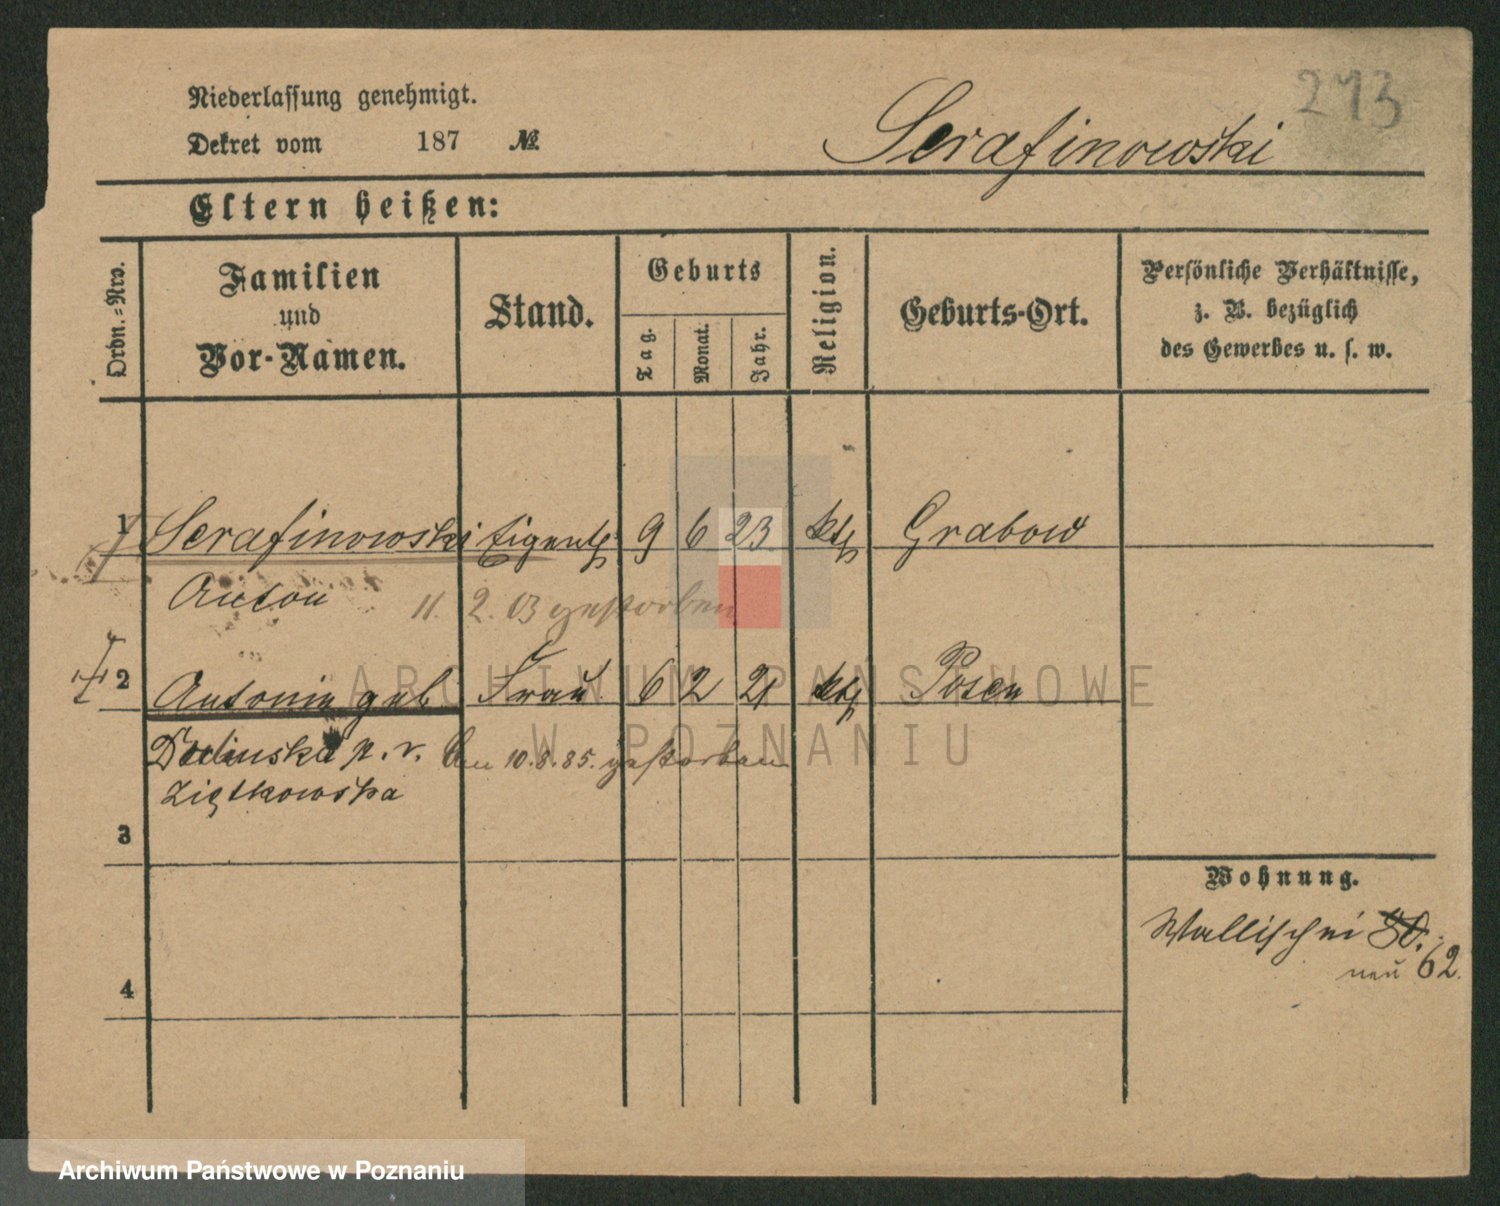 213
Niederlassung genehmigt.
Dekret vom 187 №
Serafinowski
Eltern heißen:
Ordn.-Nro.
Familien und Vor-Namen.
Stand.
Geburts
Tag.
Monat.
Jahr.
Religion.
Geburts-Ort.
Persönliche Verhältnisse,
z. B. bezüglich
des Gewerbes u. s. w.
1 Serafinowski Eigenth 9 6 23 kth Grabow
Anton 11. 2. 03 gestorben
2 Antonie geb Frau 6 2 21 kth Posen
p. v. Am 10.8.85. gestorben
Ziętkowska
3
Wohnung.
Wallischei 30.
neu 62.
4
ARCHIWUM PAŃSTWOWE
W POZNANIU
Archiwum Państwowe w Poznaniu